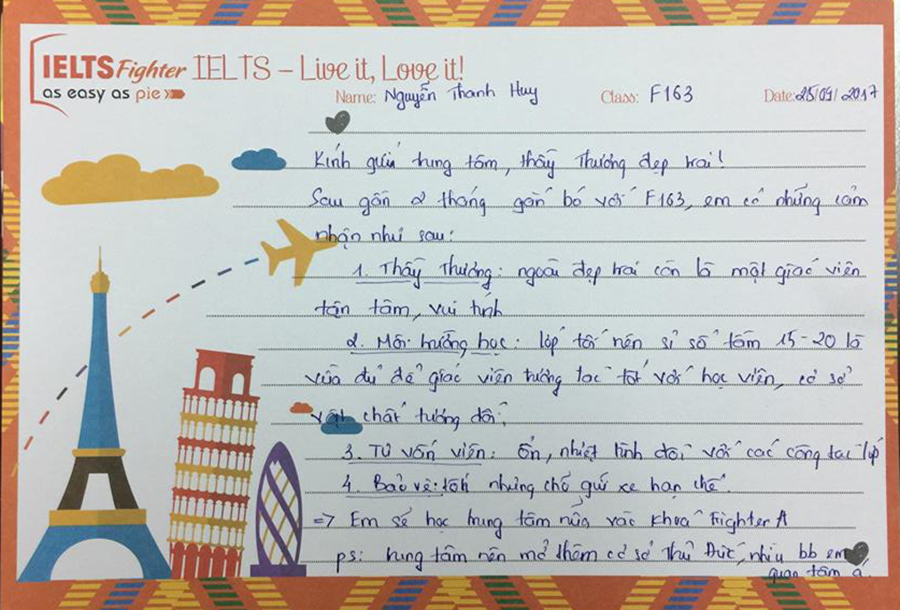 IELTS Fighter IELTS – Live it, Love it!
as easy as pie
Name: Nguyễn Thanh Huy Class: F163 Date: 25/09/2017
Kính gửi trung tâm, thầy Thương đẹp trai!
Sau gần 2 tháng gắn bó với F163, em có những cảm
nhận như sau:
1. Thầy Thương: ngoài đẹp trai còn là một giáo viên
tận tâm, vui tính
2. Môi trường học: lớp tối nên sỉ số tầm 15-20 là
vừa đủ để giáo viên tương tác tốt với học viên, cơ sở
vật chất tương đối.
3. Tư vấn viên: ổn, nhiệt tình đối với các công tác lớp
4. Bảo vệ: tốt nhưng chỗ gửi xe hạn chế.
=> Em sẽ học trung tâm nữa vào khoá Fighter A
ps: trung tâm nên mở thêm cơ sở Thủ Đức, nhìu bb em
quan tâm á.